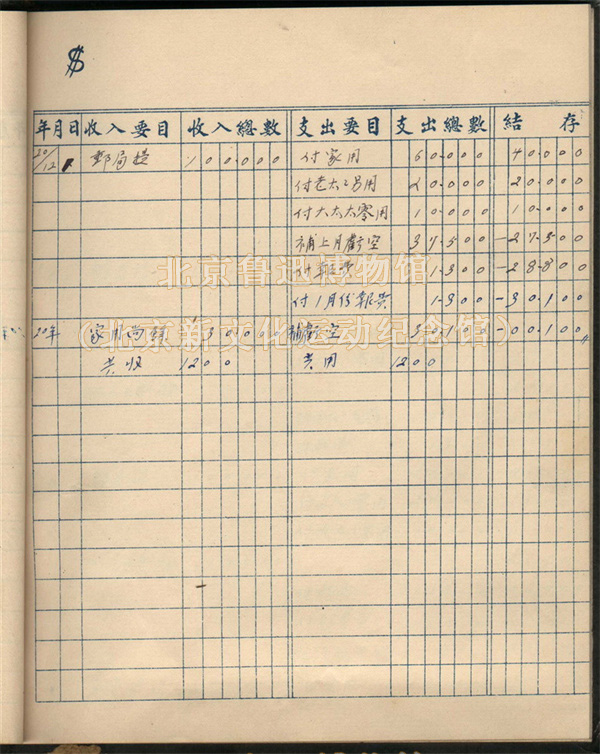 $
年月日 收入要目 收入總數 支出要目 支出總數 結存
20/12 郵局提 100.000 付家用 60.000 40.000
付老太太另用 20.000 20.000
付大太太零用 10.000 10.000
補上月虧空 37.500 -27.500
付報費 1.300 -28.800
付1月份報費 1.300 -30.100
20年 家用 補虧空 30.100 -00.100
共收 1200 共用 1200
北京鲁迅博物馆
（北京新文化运动纪念馆）